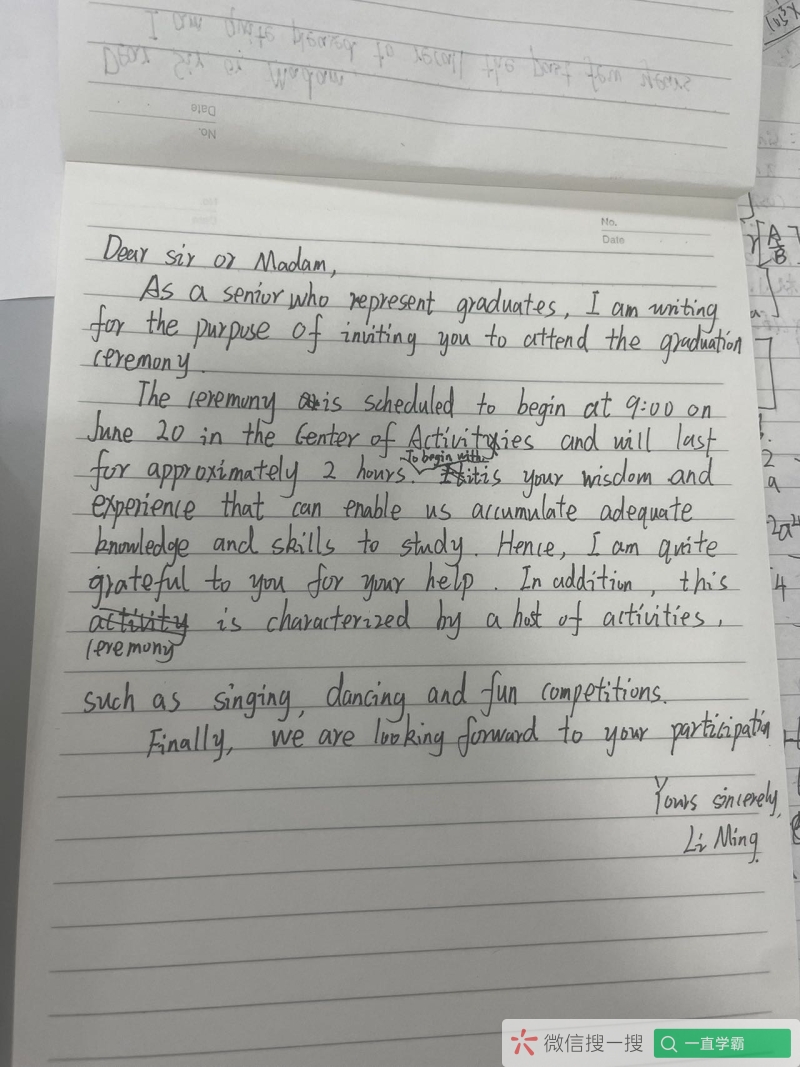 I am quite pleased to recall the past few years
Dear Sir or Madam
Date
No.
No.
Date
Dear Sir or Madam,
As a senior who represent graduates, I am writing
for the purpose of inviting you to attend the graduation
ceremony.
The ceremony is scheduled to begin at 9:00 on
June 20 in the Center of Activities and will last
To begin with,
for approximately 2 hours. it is your wisdom and
experience that can enable us accumulate adequate
knowledge and skills to study. Hence, I am quite
grateful to you for your help. In addition, this
activity is characterized by a host of activities,
ceremony
such as singing, dancing and fun competitions.
Finally, we are looking forward to your participation
Yours sincerely,
Li Ming.
微信搜一搜
一直学霸